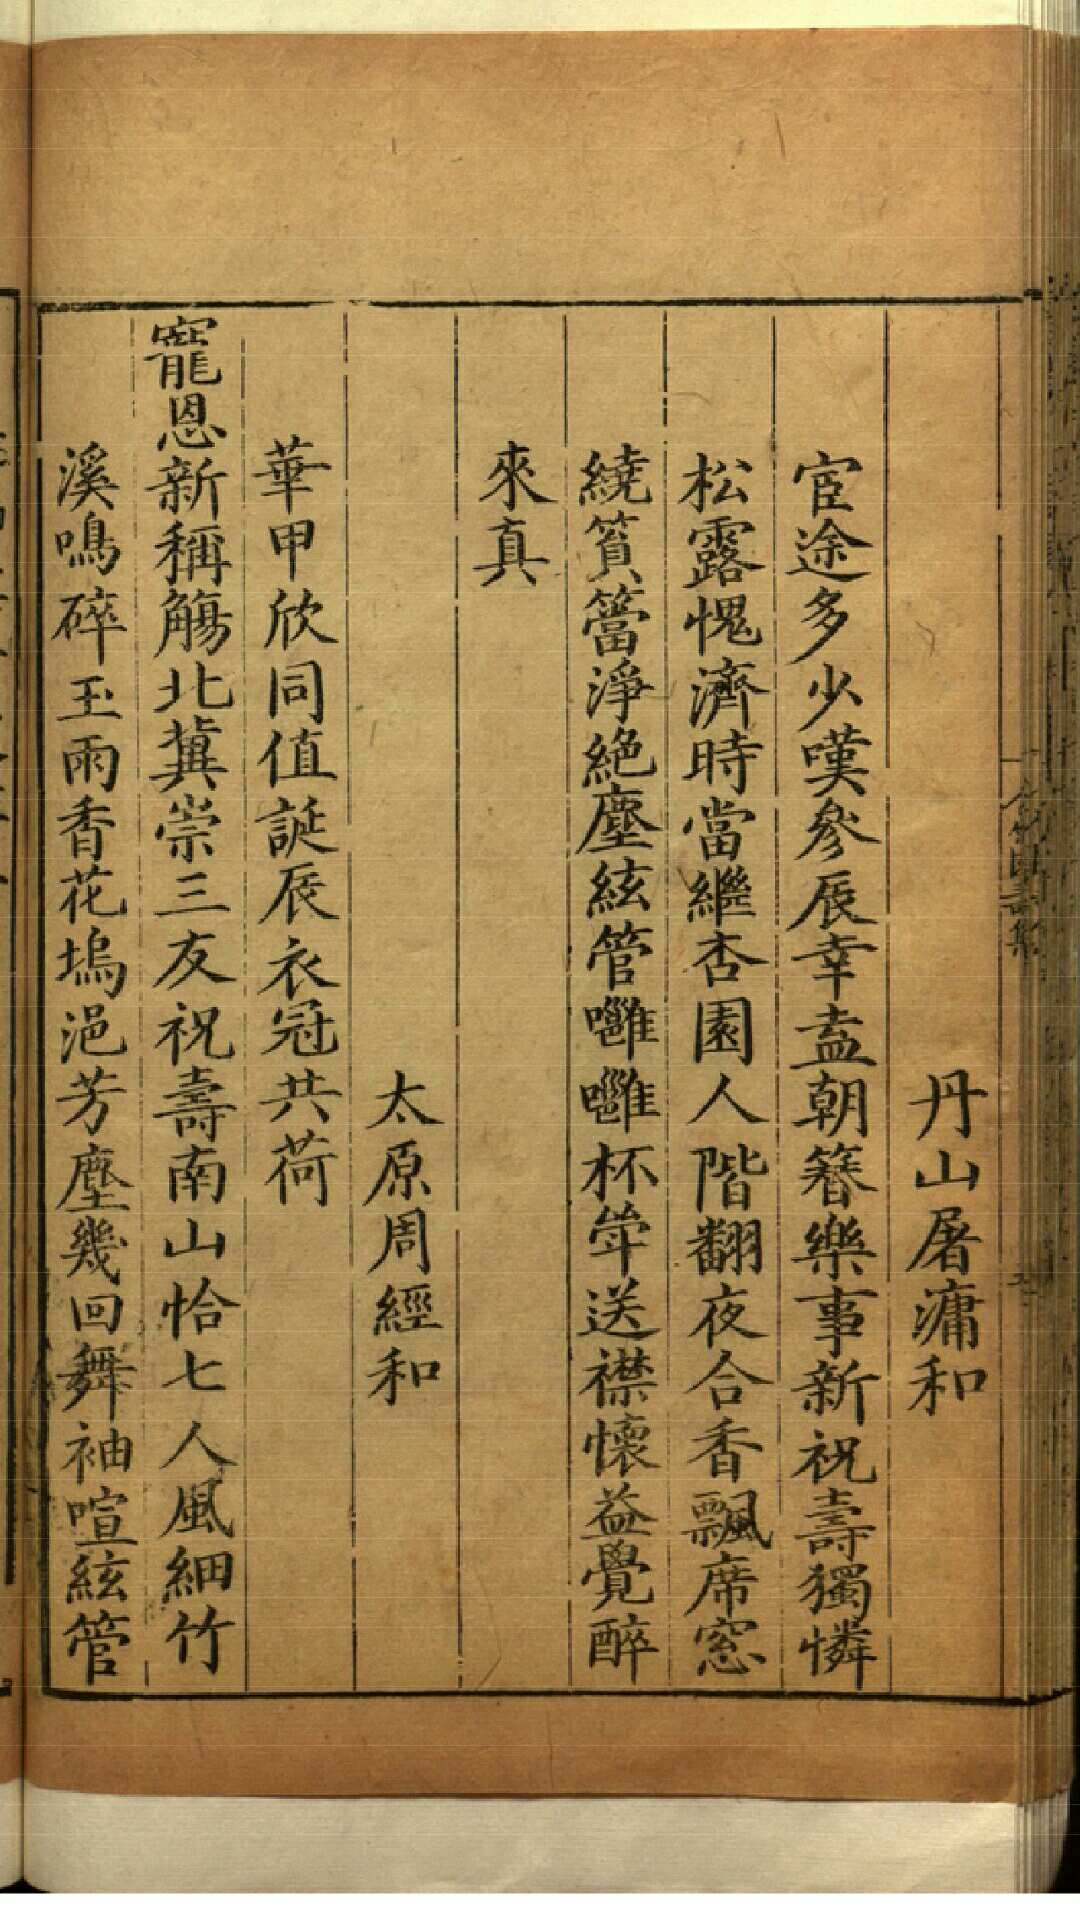 丹山屠滽和
宦途多少嘆參辰幸盍朝簮樂事新祝壽獨憐
松露愧濟時當繼杏園人階翻夜合香飄席窓
繞篔簹淨絶塵絃管嚾嚾杯斝送襟懷益覺醉
來真
太原周經和
華甲欣同值誕辰衣冠共荷
寵恩新稱觴北冀崇三友祝壽南山恰七人風細竹
溪鳴碎玉雨香花塢浥芳塵幾回舞袖喧絃管